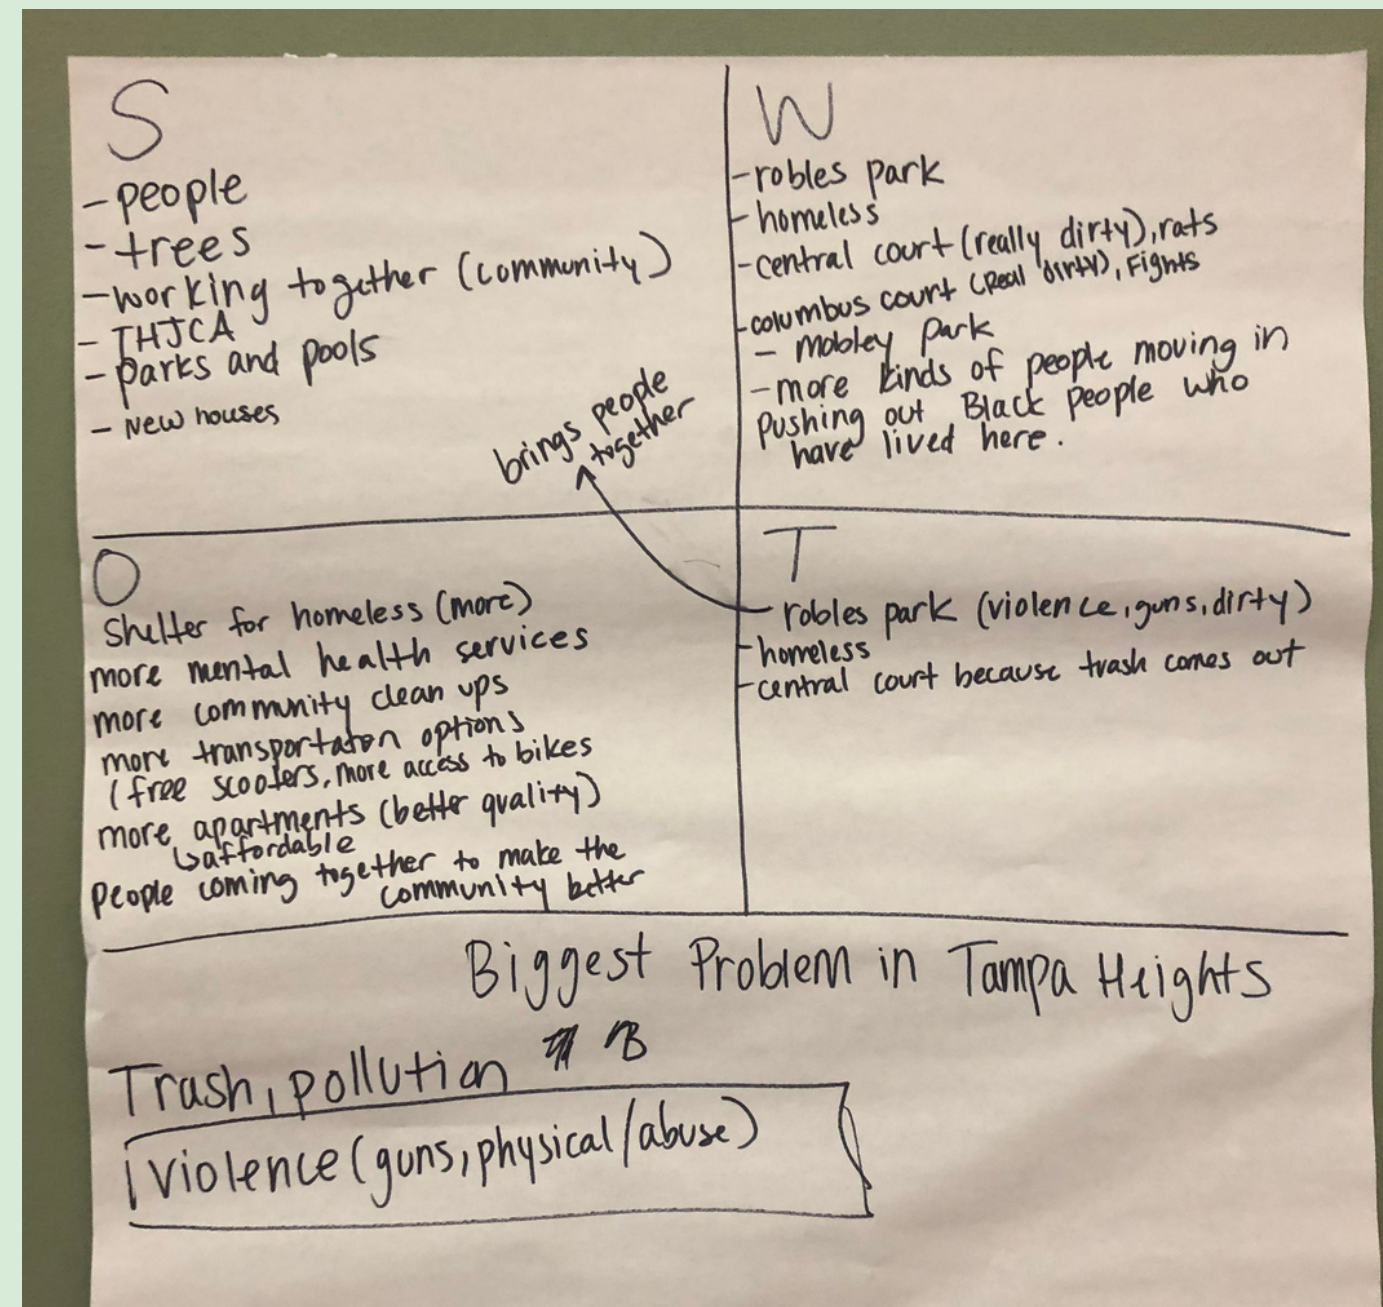 S
- people
- trees
- working together (community)
- THJCA
- Parks and pools
- New houses
brings people
together
W
- robles park
- homeless
- central court (really dirty), rats
- columbus court (Real dirty), Fights
- Mobley Park
- more kinds of people moving in
Pushing out Black people who
have lived here.
O
Shelter for homeless (more)
more mental health services
more community clean ups
more transportaton options
(free scooters, more access to bikes
more apartments (better quality)
↳affordable
People coming together to make the
community better
T
- robles park (violence, guns, dirty)
- homeless
- central court because trash comes out
Biggest Problem in Tampa Heights
Trash, pollution
violence (guns, physical/abuse)